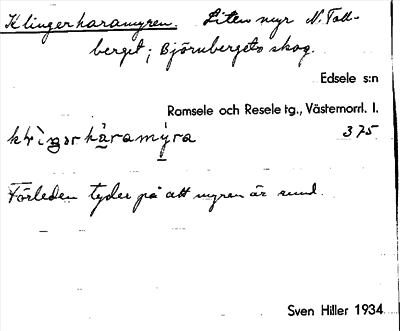 Klingerharamyren. Liten myr N. Tall-
berget; Björnbergets skog.
Edsele s:n
Ramsele och Resele tg., Västernorrl. l.
375
Förleden tyder på att myren är rund.
Sven Hiller 1934